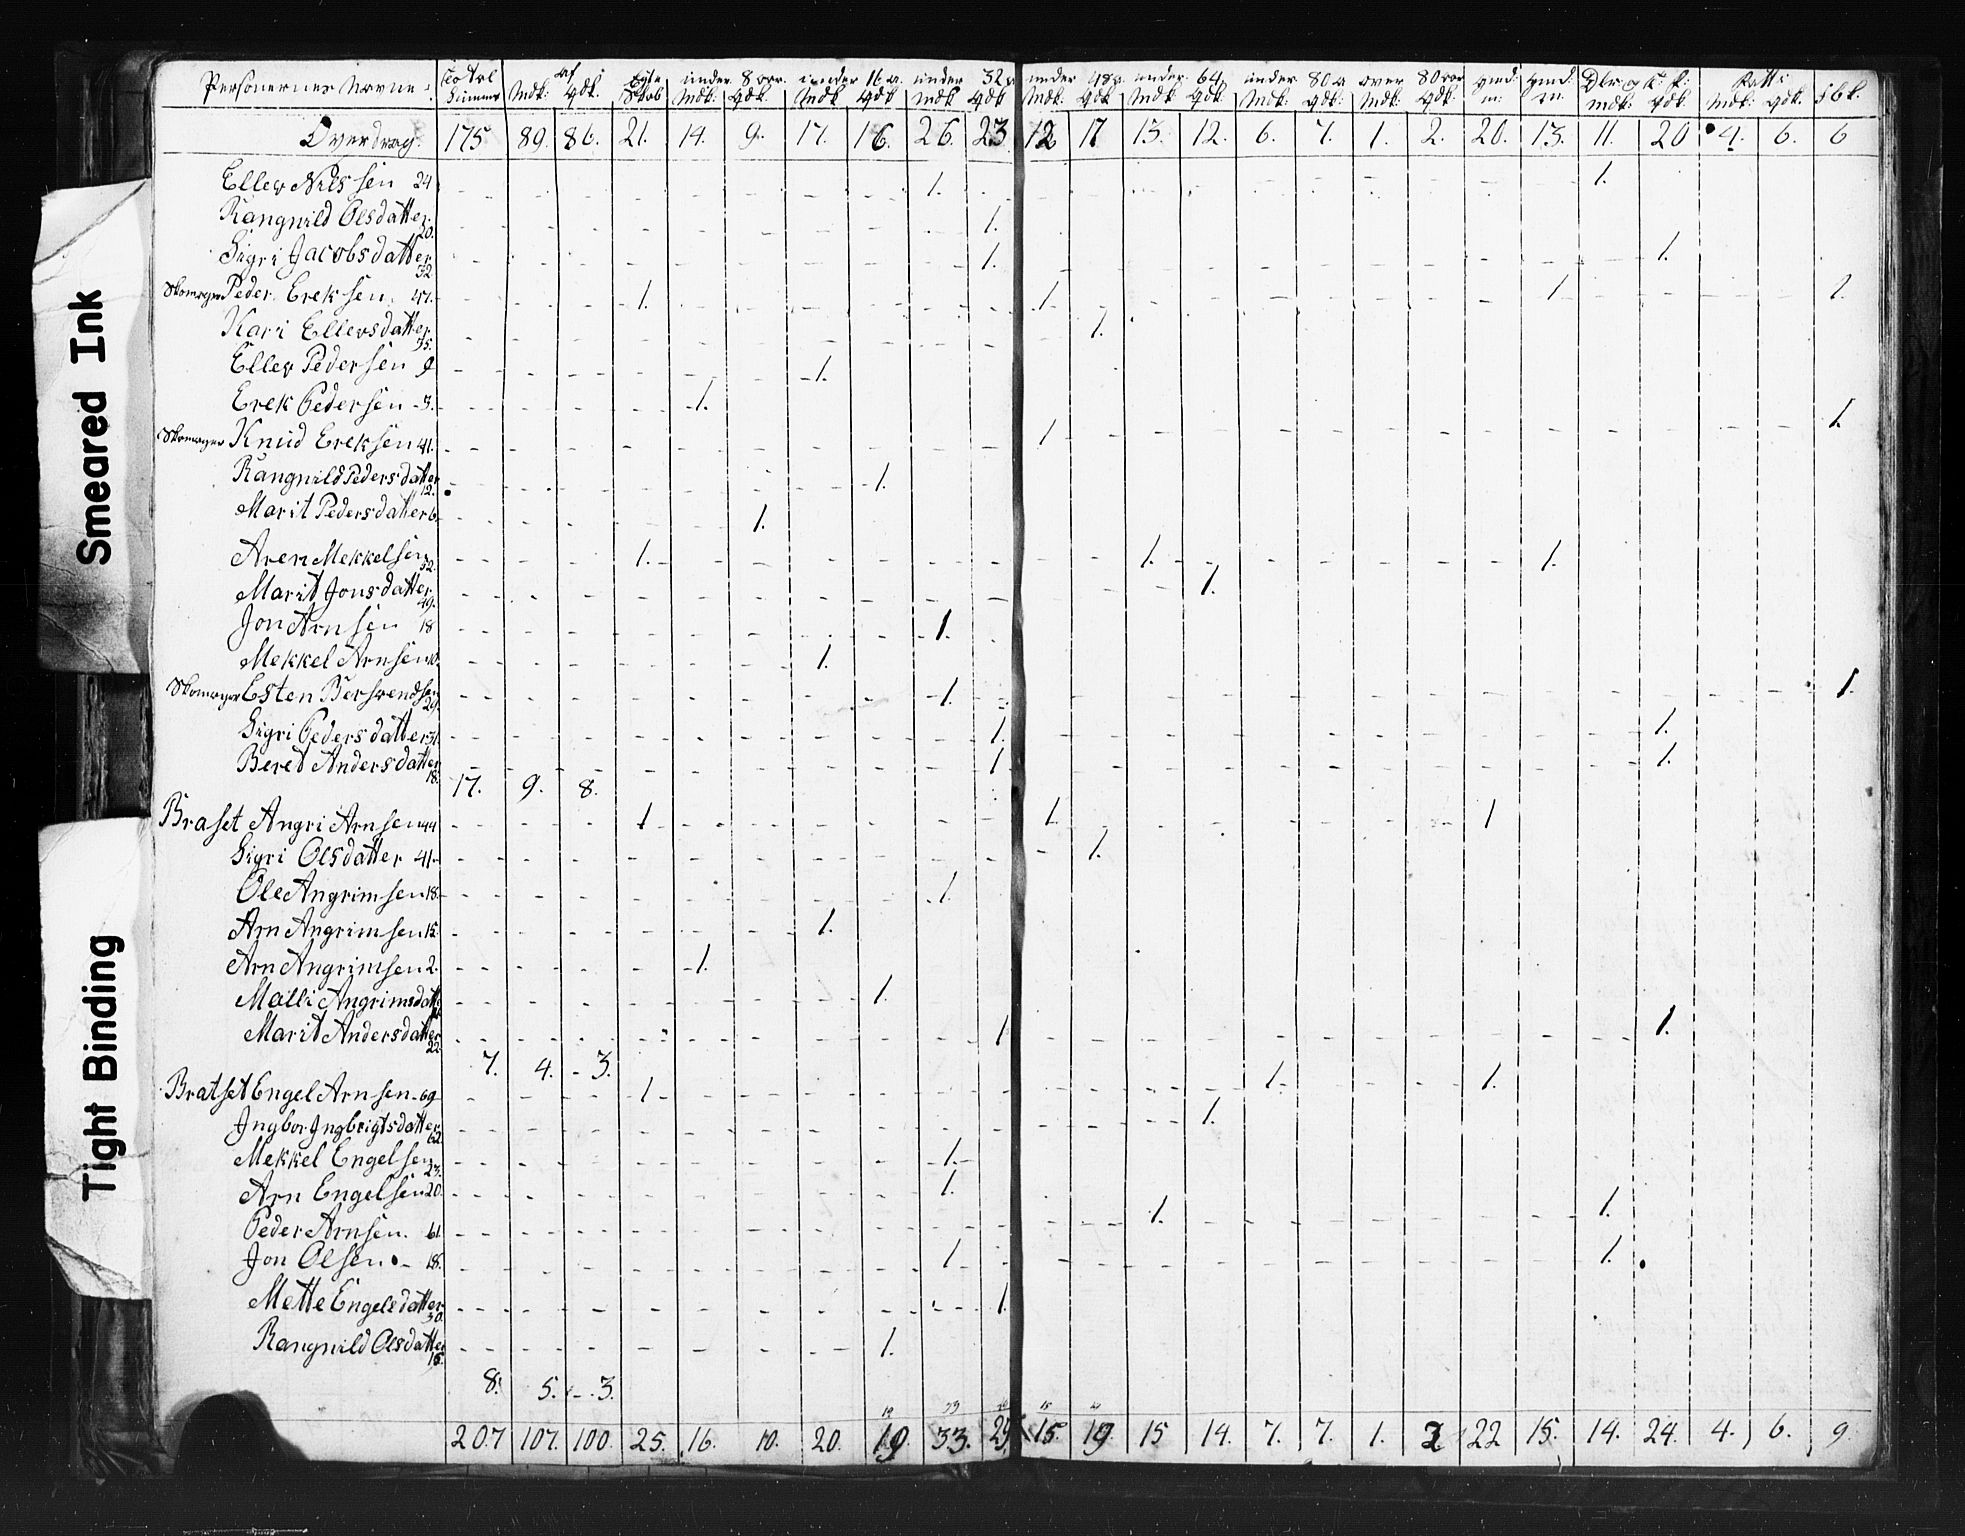 Smeared Ink
Tight Binding
Personernes Navne
Mdk: Qdk: under 8 aar. under 16 a. under 32 a under 48 a. under 64 under 80 a over 80 aar
Overdrag. 175 89. 86. 21. 14. 9. 17. 16. 26. 23 12 17 13. 12. 6. 7. 1. 2. 20. 13. 11. 20 4. 6. 6
Ellev Nilssen 24 1. 1.
Rangnild Olsdatter 20. 1.
Sigri Jacobsdatter 32 1. 1.
Peder Ereksen. 47. 1. 1. 1. 1.
Kari Ellevsdatter 35. 1.
Ellev Pedersen 9 1.
Erek Pedersen 3. 1.
Knud Ereksen 41. 1. 1.
Rangnild Pedersdatter 12. 1.
Marit Pedersdatter 6 1.
Aren Mekkelsen 52. 1. 1. 1.
Marit Jonsdatter 49. 1.
Jon Arnsen 18 1.
Mekkel Arnsen 10. 1.
Esten Bersvendsen 29. 1. 1.
Sigri Pedersdatter 31. 1. 1.
Bered Andersdatter 18. 1 1.
17. 9. 8.
Braset Angri Arnsen 44 1 1. 1
Sigri Olsdatter 41 1.
Ole Angrimsen 18. 1.
Arn Angrimsen 15. 1.
Arn Angrimsen 2. 1.
Malli Angrimsdatt 1.
Marit Andersdatter 22 1 1.
7. 4. 3.
Bratset Engel Arnsen 69 1 1. 1.
Jngbor Jngbrigtsdatter 62. 1.
Mekkel Engelsen 23. 1.
Arn Engelsen 20 1. 1.
Peder Arnsen. 61 1.
Jon Olsen 18. 1. 1.
Mette Engelsdatter 30. 1.
Rangnild Olsdatter 15. 1.
8. 5. 3.
207 107. 100. 25. 16. 10. 20. 19 33. 29 15. 19 15 14. 7. 7. 1. 2 22 15. 14. 24. 4. 6. 9.